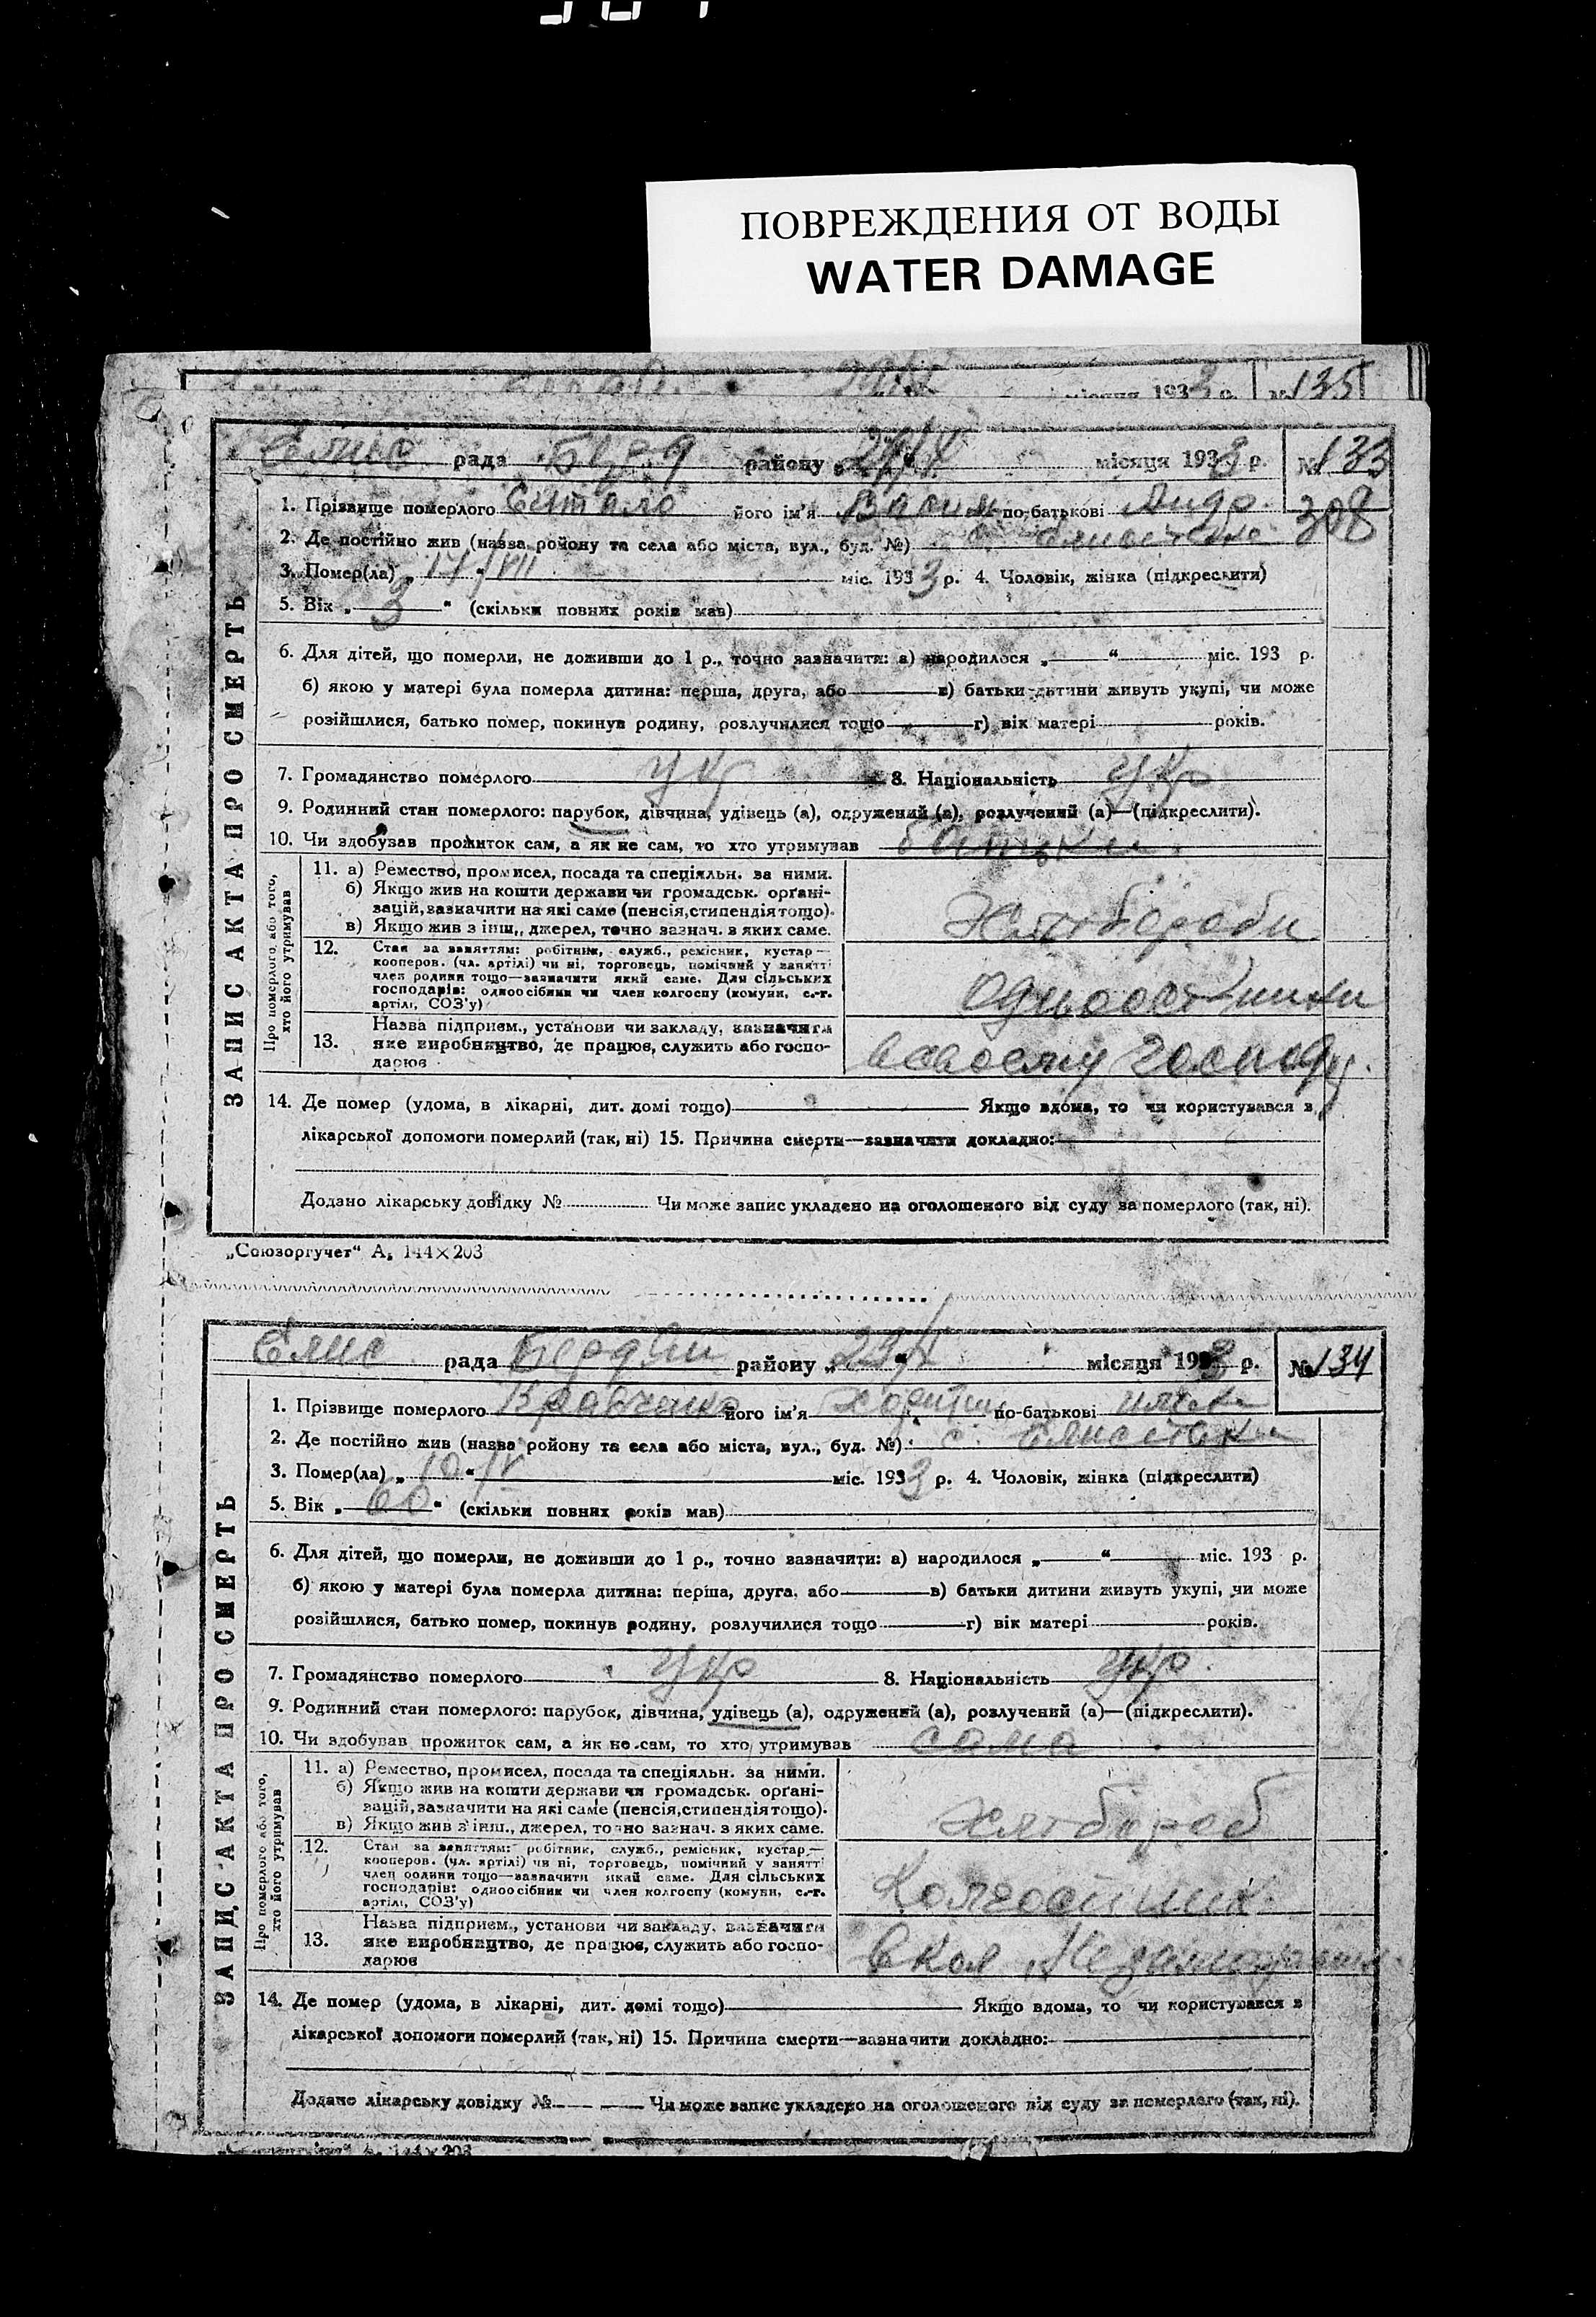 ПОВРЕЖДЕНИЯ ОТ ВОДЫ
WATER DAMAGE
місяця 1933 р. № 135
рада районну „ місяця 1933 р. № 133
1. Прізвище померлого його ім'я Васил по-батькові
308
2. Де постійно жив (назва ройону та села або міста, вул., буд. №) с.
3. Помер(ла) „ 17/VII міс. 1933 р. 4. Чоловік, жінка (підкреслити)
5. Вік „ 3 “ (скільки повних років мав)
6. Для дітей, що померли, не доживши до 1 р., точно зазначити: а) народилося „ “ міс. 193 р.
б) якою у матері була померла дитина: перша, друга, або в) батьки дитини живуть укупі, чи може
розійшлися, батько помер, покинув родину, розлучилися тощо г) вік матері років.
7. Громадянство померлого укр 8. Національність укр
9. Родинний стан померлого: парубок, дівчина, удівець (а), одружений (а), розлучений (а)—(підкреслити).
10. Чи здобував прожиток сам, а як не сам, то хто утримував батьки
ЗАПИС АКТА ПРО СМЕРТЬ
Про померлого або того, хто його утримував
11. а) Ремество, промисел, посада та спеціяльн. за ними.
б) Якщо жив на кошти держави чи громадськ. органі-
зацій, зазначити на які саме (пенсія, стипендія тощо).
в) Якщо жив з інш., джерел, точно зазнач. з яких саме.
Хлібороби
12. Стан за заняттям: робітник, служб., ремісник, кустар—
кооперов. (чл. артілі) чи ні, торговець, помічний у занятті
член родини тощо—зазначити який саме. Для сільських
господарів: одноосібник чи член колгоспу (комуни, с.-г.
артілі, СОЗ'у)
одноосібники
13. Назва підприєм., установи чи закладу, зазначити
яке виробництво, де працює, служить або госпо-
дарює
в своєму господ.
14. Де помер (удома, в лікарні, дит. домі тощо) Якщо вдома, то чи користувався з
лікарської допомоги померлий (так, ні) 15. Причина смерти—зазначити докладно:
Додано лікарську довідку № Чи може запис укладено на оголошеного від суду за померлого (так, ні).
„Союзоргучет“ А, 144×203
Єлис рада районну „ 23/X місяця 1933 р. № 134
1. Прізвище померлого Кравченко його ім'я по-батькові
2. Де постійно жив (назва ройону та села або міста, вул., буд. №) с.
3. Помер(ла) „ міс. 1933 р. 4. Чоловік, жінка (підкреслити)
5. Вік „ 60 “ (скільки повних років мав)
6. Для дітей, що померли, не доживши до 1 р., точно зазначити: а) народилося „ “ міс. 193 р.
б) якою у матері була померла дитина: перша, друга, або в) батьки дитини живуть укупі, чи може
розійшлися, батько помер, покинув родину, розлучилися тощо г) вік матері років.
7. Громадянство померлого укр 8. Національність укр.
9. Родинний стан померлого: парубок, дівчина, удівець (а), одружений (а), розлучений (а)—(підкреслити).
10. Чи здобував прожиток сам, а як не сам, то хто утримував сама
ЗАПИС АКТА ПРО СМЕРТЬ
Про померлого або того, хто його утримував
11. а) Ремество, промисел, посада та спеціяльн. за ними.
б) Якщо жив на кошти держави чи громадськ. органі-
зацій, зазначити на які саме (пенсія, стипендія тощо).
в) Якщо жив з інш., джерел, точно зазнач. з яких саме.
Хлібороб
12. Стан за заняттям: робітник, служб., ремісник, кустар—
кооперов. (чл. артілі) чи ні, торговець, помічний у занятті
член родини тощо—зазначити який саме. Для сільських
господарів: одноосібник чи член колгоспу (комуни, с.-г.
артілі, СОЗ'у)
Колгоспник
13. Назва підприєм., установи чи закладу, зазначити
яке виробництво, де працює, служить або госпо-
дарює
в кол
14. Де помер (удома, в лікарні, дит. домі тощо) Якщо вдома, то чи користувався з
лікарської допомоги померлий (так, ні) 15. Причина смерти—зазначити докладно:
Додано лікарську довідку № Чи може запис укладено на оголошеного від суду за померлого (так, ні).
144×203